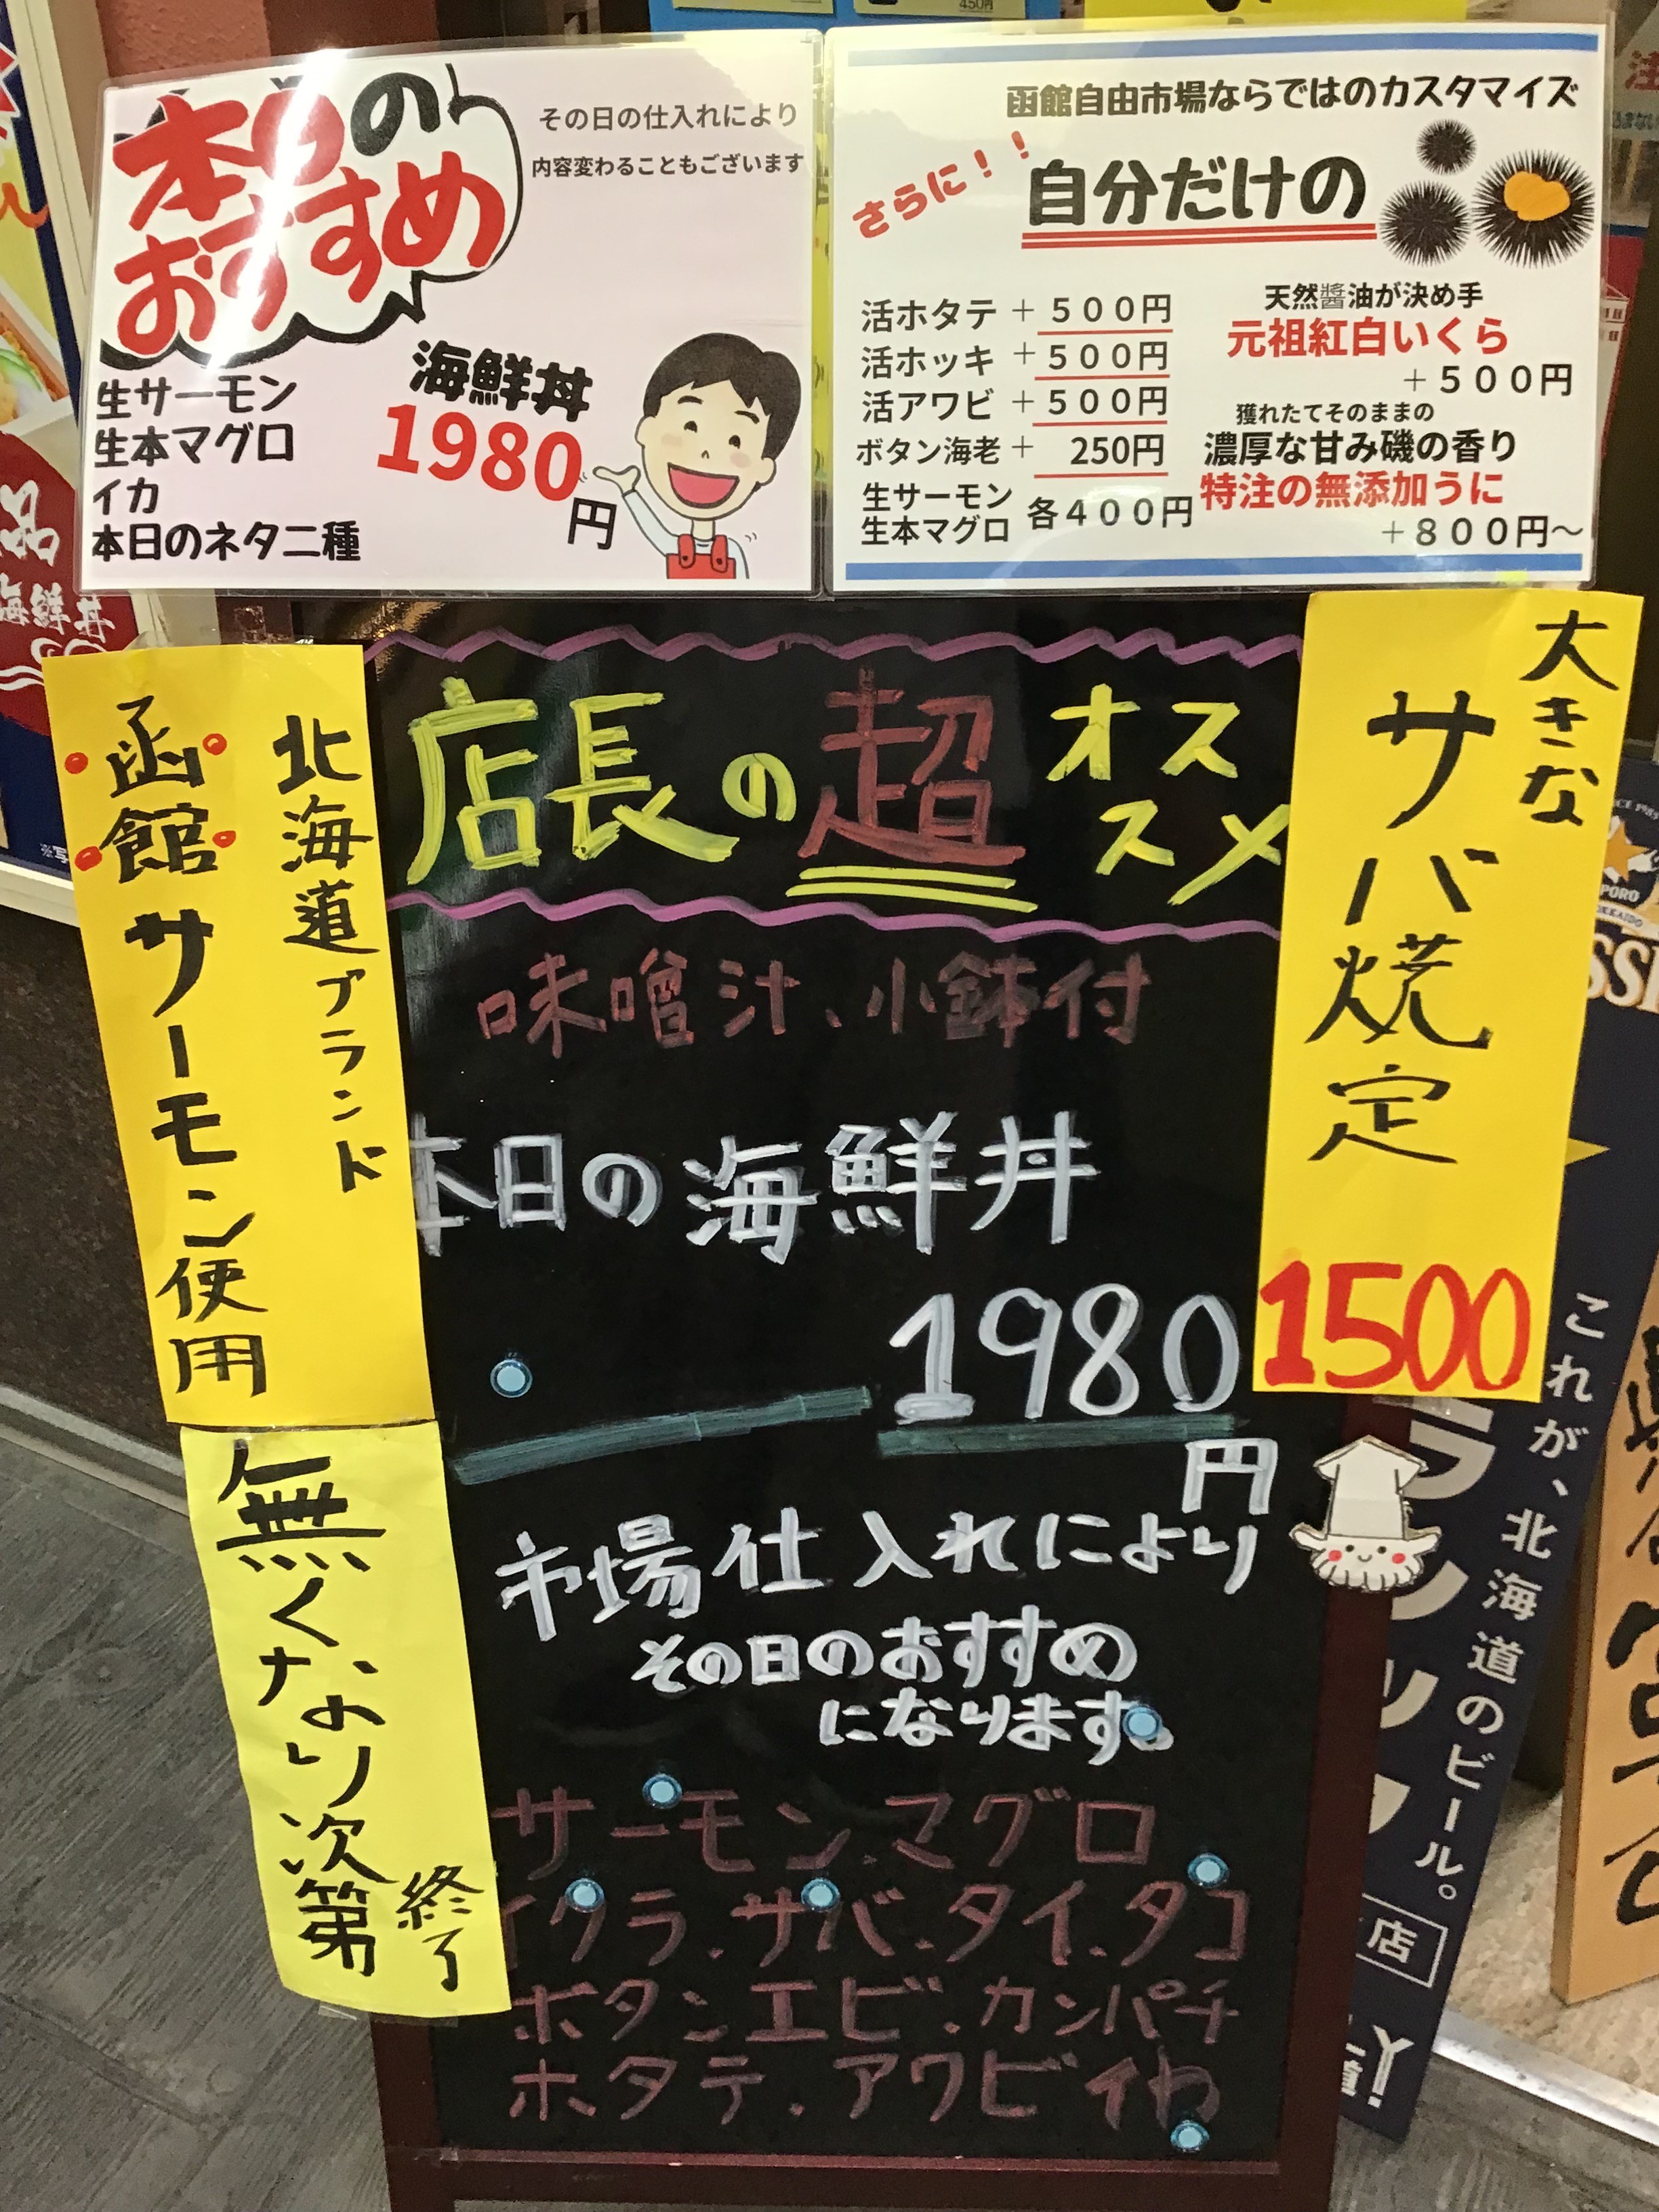 450円
本日の
おすすめ
その日の仕入れにより
内容変わることもございます
海鮮丼
1980
円
生サーモン
生本マグロ
イカ
本日のネタ二種
函館自由市場ならではのカスタマイズ
さらに！！
自分だけの
活ホタテ + 500円
活ホッキ + 500円
活アワビ + 500円
ボタン海老 + 250円
生サーモン
生本マグロ
各400円
天然醬油が決め手
元祖紅白いくら
+500円
獲れたてそのままの
濃厚な甘み磯の香り
特注の無添加うに
+800円〜
北海道ブランド
函館サーモン使用
無くなり次第
終了
店長の超オス
スメ
味噌汁、小鉢付
本日の海鮮丼
1980
円
市場仕入れにより
その日のおすすめ
になります。
サーモン.マグロ
イクラ.サバ.タイ.タコ
ボタンエビ.カンパチ
ホタテ.アワビイカ
大きな
サバ焼定
1500
これが、北海道のビール。
海鮮丼
店